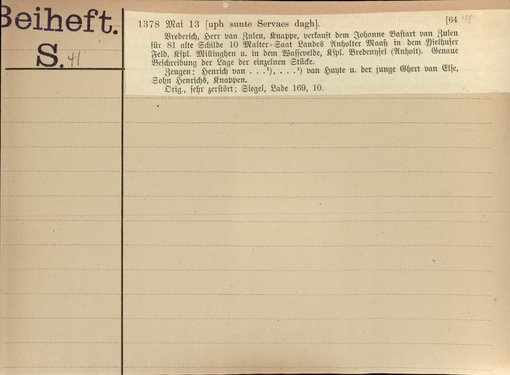 Beiheft.
S. 41
1378 Mai 13 [uph sunte Servaes dagh]. [64 41
Vrederich, Herr van Zulen, Knappe, verkauft dem Johanne Bastart van Zulen
für 81 alte Schilde 10 Malter-Saat Landes Anholter Maaß in dem
Feld, Kspl. Millinghen u. in dem Wassevelde, Kspl. Bredenysel (Anholt). Genaue
Beschreibung der Lage der einzelnen Stücke.
Zeugen: Henrich van . . .¹), . . .¹) van Huyte u. der junge Ghert van Else,
Sohn Henrichs, Knappen.
Orig., sehr zerstört; Siegel, Lade 169, 10.